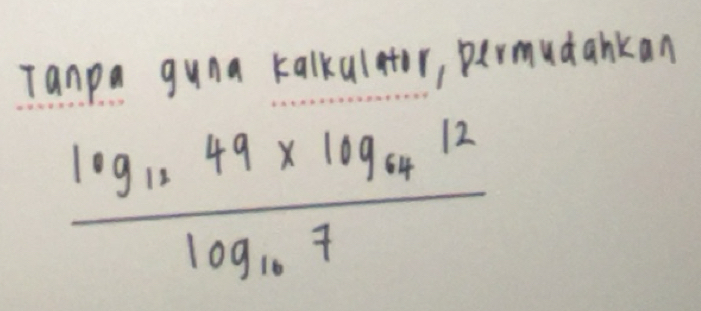 Tanpa guna kalkulator, permudahkan
log₁₂ 49 x log₆₄ 12
log₁₆ 7